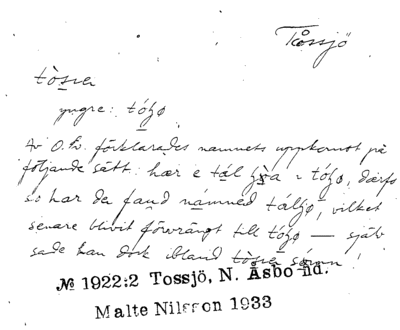 Tossjö
tòsɩa
yngre: tóʒø
Av O.L. förklarades namnets uppkomst på
följande sätt: hær e tál i tóʒø, dærfo
so har de faud námned tálʒø, vilket
senare blivit förvrängt till tóʒø — själv
sade han dock ibland
№ 1922:2 Tossjö, N. Åsbo hd.
Malte Nilsson 1933